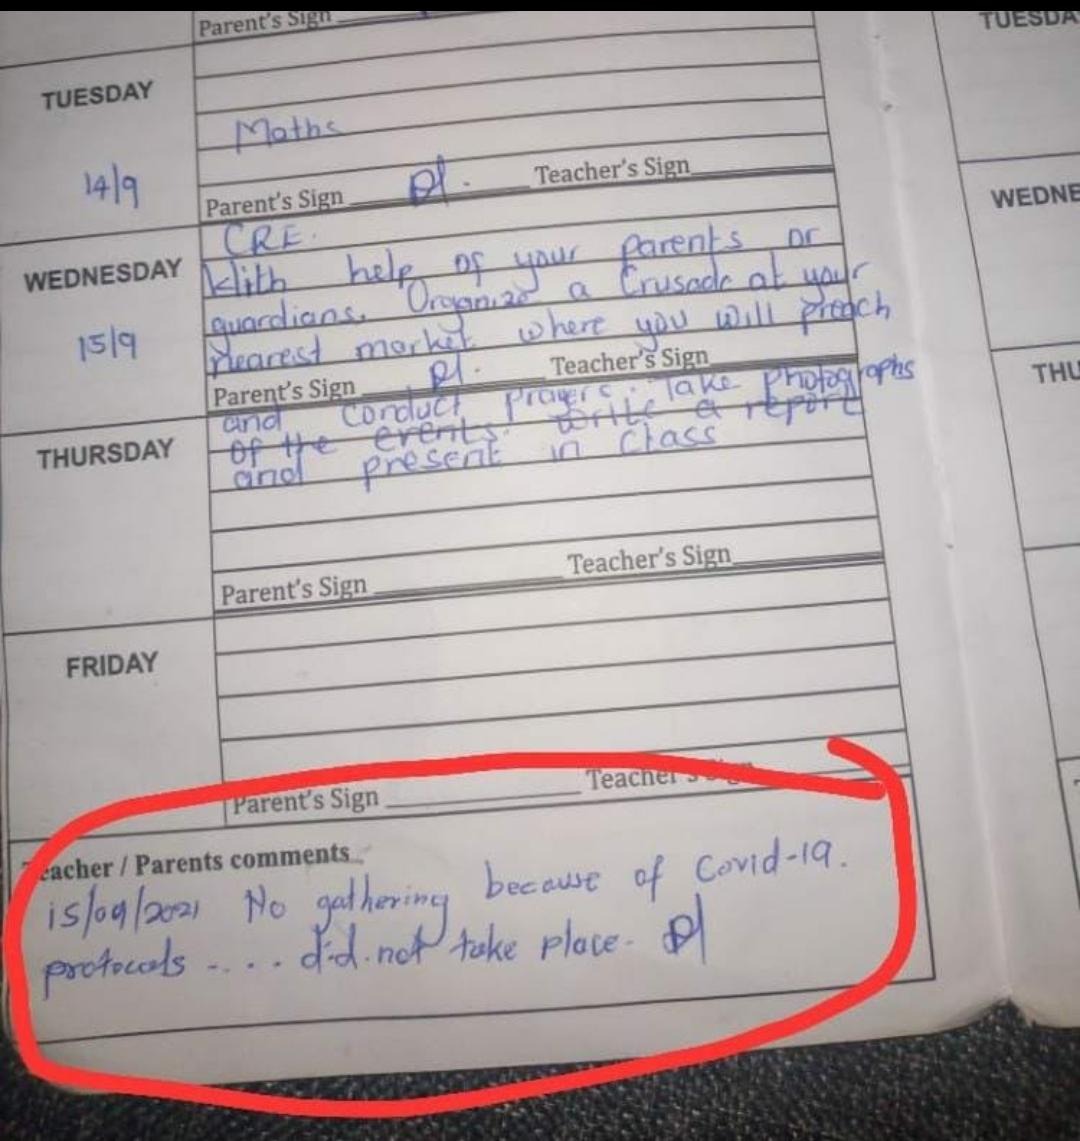 Parent's Sign
TUESDAY
Maths
14/9
Parent's Sign Teacher's Sign
CRE.
WEDNESDAY
With help of your parents or
guardians. Organize a Crusade at your
15/9
nearest market where you will preach
Parent's Sign Teacher's Sign
and conduct prayers. Take photographs
of the events. Write a report
THURSDAY
and present in class
Parent's Sign Teacher's Sign
FRIDAY
Parent's Sign Teacher's Sign
Teacher / Parents comments
15/09/2021 No gathering because of Covid-19.
protocols .... did not take place.
TUESDA
WEDNE
THU